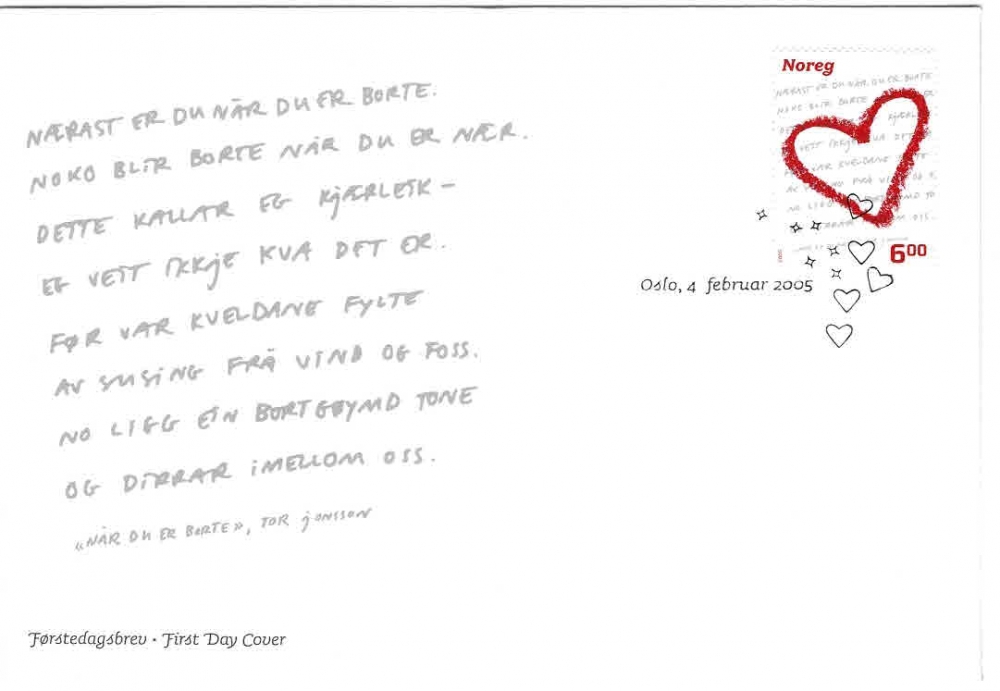 NÆRAST ER DU NÅR DU ER BORTE.
NOKO BLIR BORTE NÅR DU ER NÆR.
DETTE KALLAR EG KJÆRLEIK –
EG VEIT IKKJE KVA DET ER.
FØR VAR KVELDANE FYLTE
AV SUSING FRÅ VIND OG FOSS.
NO LIGG EIN BORTGØYMD TONE
OG DIRRAR IMELLOM OSS.
«NÅR DU ER BORTE», TOR JONSSON
Noreg
NÆRAST ER DU NÅR DU ER BORTE
NOKO BLIR BORTE
VEIT IKKJE KVA DET
VAR KVELDANE FYLTE
FRÅ VIND OG
NO LIGG
DIRRAR IMELLOM OSS
6.00
Oslo, 4 februar 2005
Førstedagsbrev · First Day Cover